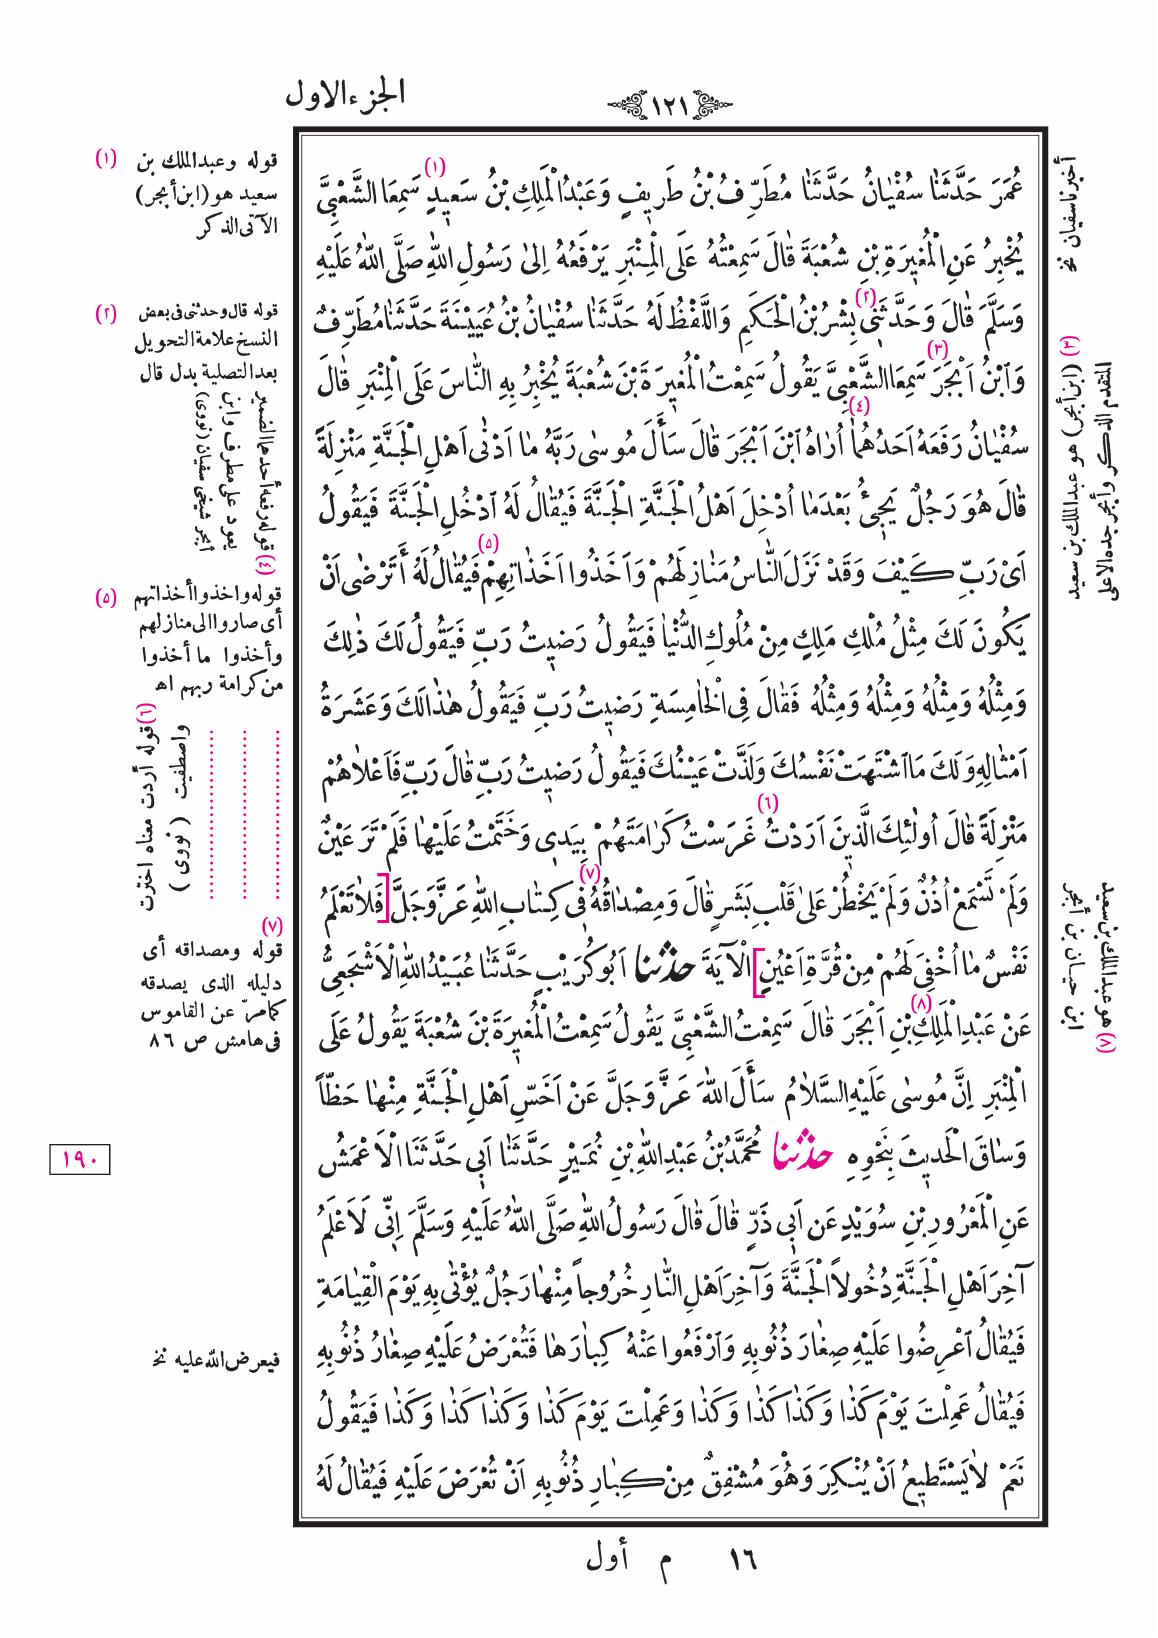 الجزء الاول
١٢١
عُمَرَ حَدَّثَنَا سُفْيَانُ حَدَّثَنَا مُطَرِّفُ بْنُ طَرِيفٍ وَعَبْدُ الْمَلِكِ بْنُ سَعِيدٍ (١) سَمِعَا الشَّعْبِيَّ
يُخْبِرُ عَنِ الْمُغِيرَةِ بْنِ شُعْبَةَ قَالَ سَمِعْتُهُ عَلَى الْمِنْبَرِ يَرْفَعُهُ اِلىٰ رَسُولِ اللهِ صَلَّى اللهُ عَلَيْهِ
وَسَلَّمَ قَالَ وَحَدَّثَنِى (٢) بِشْرُ بْنُ الْحَكَمِ وَاللَّفْظُ لَهُ حَدَّثَنَا سُفْيَانُ بْنُ عُيَيْنَةَ حَدَّثَنَا مُطَرِّفٌ
وَابْنُ اَبْجَرَ (٣) سَمِعَا الشَّعْبِيَّ يَقُولُ سَمِعْتُ الْمُغِيرَةَ بْنَ شُعْبَةَ يُخْبِرُ بِهِ النَّاسَ عَلَى الْمِنْبَرِ قَالَ
سُفْيَانُ رَفَعَهُ اَحَدُهُمَا (٤) اُرَاهُ ابْنَ اَبْجَرَ قَالَ سَأَلَ مُوسىٰ رَبَّهُ مَا اَدْنٰى اَهْلِ الْجَنَّةِ مَنْزِلَةً
قَالَ هُوَ رَجُلٌ يَجِيُ بَعْدَمَا اُدْخِلَ اَهْلُ الْجَنَّةِ الْجَنَّةَ فَيُقَالُ لَهُ ادْخُلِ الْجَنَّةَ فَيَقُولُ
اَىْ رَبِّ كَيْفَ وَقَدْ نَزَلَ النَّاسُ مَنَازِلَهُمْ وَاَخَذُوا اَخَذَاتِهِمْ (٥) فَيُقَالُ لَهُ أَتَرْضٰى اَنْ
يَكُونَ لَكَ مِثْلُ مُلْكِ مَلِكٍ مِنْ مُلُوكِ الدُّنْيَا فَيَقُولُ رَضِيتُ رَبِّ فَيَقُولُ لَكَ ذٰلِكَ
وَمِثْلُهُ وَمِثْلُهُ وَمِثْلُهُ وَمِثْلُهُ فَقَالَ فِى الْخَامِسَةِ رَضِيتُ رَبِّ فَيَقُولُ هٰذَا لَكَ وَعَشَرَةُ
اَمْثَالِهِ وَلَكَ مَا اشْتَهَتْ نَفْسُكَ وَلَذَّتْ عَيْنُكَ فَيَقُولُ رَضِيتُ رَبِّ قَالَ رَبِّ فَاَعْلَاهُمْ
مَنْزِلَةً قَالَ اُولٰئِكَ الَّذِينَ اَرَدْتُ (٦) غَرَسْتُ كَرَامَتَهُمْ بِيَدِى وَخَتَمْتُ عَلَيْهَا فَلَمْ تَرَ عَيْنٌ
وَلَمْ تَسْمَعْ اُذُنٌ وَلَمْ يَخْطُرْ عَلىٰ قَلْبِ بَشَرٍ قَالَ وَمِصْدَاقُهُ (٧) فِى كِتَابِ اللهِ عَزَّ وَجَلَّ [فَلَا تَعْلَمُ
نَفْسٌ مَا اُخْفِىَ لَهُمْ مِنْ قُرَّةِ اَعْيُنٍ] الْآيَةَ حدثنا اَبُو كُرَيْبٍ حَدَّثَنَا عُبَيْدُ اللهِ الْاَشْجَعِىُّ
عَنْ عَبْدِ الْمَلِكِ (٨) بْنِ اَبْجَرَ قَالَ سَمِعْتُ الشَّعْبِىَّ يَقُولُ سَمِعْتُ الْمُغِيرَةَ بْنَ شُعْبَةَ يَقُولُ عَلَى
الْمِنْبَرِ اِنَّ مُوسىٰ عَلَيْهِ السَّلَامُ سَأَلَ اللهَ عَزَّ وَجَلَّ عَنْ اَخَسِّ اَهْلِ الْجَنَّةِ مِنْهَا حَظّاً
وَسَاقَ الْحَدِيثَ بِنَحْوِهِ حدثنا مُحَمَّدُ بْنُ عَبْدِ اللهِ بْنِ نُمَيْرٍ حَدَّثَنَا اَبِى حَدَّثَنَا الْاَعْمَشُ
عَنِ الْمَعْرُورِ بْنِ سُوَيْدٍ عَن اَبِى ذَرٍّ قَالَ قَالَ رَسُولُ اللهِ صَلَّى اللهُ عَلَيْهِ وَسَلَّمَ اِنِّى لَاَعْلَمُ
آخِرَ اَهْلِ الْجَنَّةِ دُخُولاً الْجَنَّةَ وَآخِرَ اَهْلِ النَّارِ خُرُوجاً مِنْهَا رَجُلٌ يُؤْتٰى بِهِ يَوْمَ الْقِيَامَةِ
فَيُقَالُ اعْرِضُوا عَلَيْهِ صِغَارَ ذُنُوبِهِ وَارْفَعُوا عَنْهُ كِبَارَهَا فَتُعْرَضُ عَلَيْهِ صِغَارُ ذُنُوبِهِ
فَيُقَالُ عَمِلْتَ يَوْمَ كَذَا وَكَذَا كَذَا وَكَذَا وَعَمِلْتَ يَوْمَ كَذَا وَكَذَا كَذَا وَكَذَا فَيَقُولُ
نَعَمْ لَا يَسْتَطِيعُ اَنْ يُنْكِرَ وَهُوَ مُشْفِقٌ مِنْ كِبَارِ ذُنُوبِهِ اَنْ تُعْرَضَ عَلَيْهِ فَيُقَالُ لَهُ
أخبرنا سفيان نخ
(٣) (ابن أبجر) هو عبد الملك بن سعيد
المتقدم الذكر وأبجر جده الاعلى
(٨) هو عبد الملك بن سعيد
ابن حيان بن أبجر
(١) قوله وعبد الملك بن
سعيد هو (ابن أبجر)
الآتى الذكر
(٢) قوله قال وحدثنى فى بعض
النسخ علامة التحويل
بعد التصلية بدل قال
(٤) قوله رفعه أحدهما الضمير
يعود على مطرف وابن
أبجر شيخى سفيان (نووى)
(٥) قوله واخذوا أخذاتهم
أى صاروا الى منازلهم
وأخذوا ما أخذوا
من كرامة ربهم اه
(٦) قوله أردت معناه اخترت
واصطفيت (نووى)
(٧) قوله ومصداقه أى
دليله الذى يصدقه
كمامرّ عن القاموس
فى هامش ص ٨٦
١٩٠
فيعرض الله عليه نخ
١٦ م أول